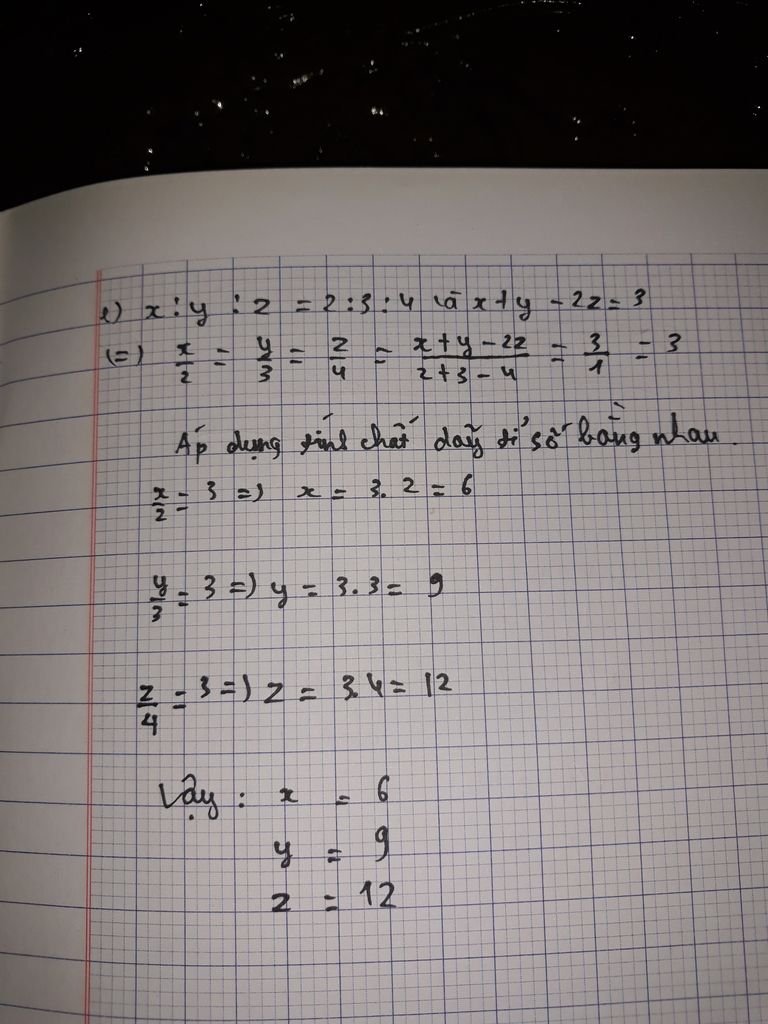 e) x : y : z = 2 : 3 : 4 và x + y - 2z = 3
(=) x/2 = y/3 = z/4 = (x + y - 2z)/(2 + 3 - 4) = 3/1 = 3
Áp dụng tính chất dãy tỉ số bằng nhau.
x/2 = 3 =) x = 3. 2 = 6
y/3 = 3 =) y = 3. 3 = 9
z/4 = 3 =) z = 3.4 = 12
Vậy : x = 6
y = 9
z = 12